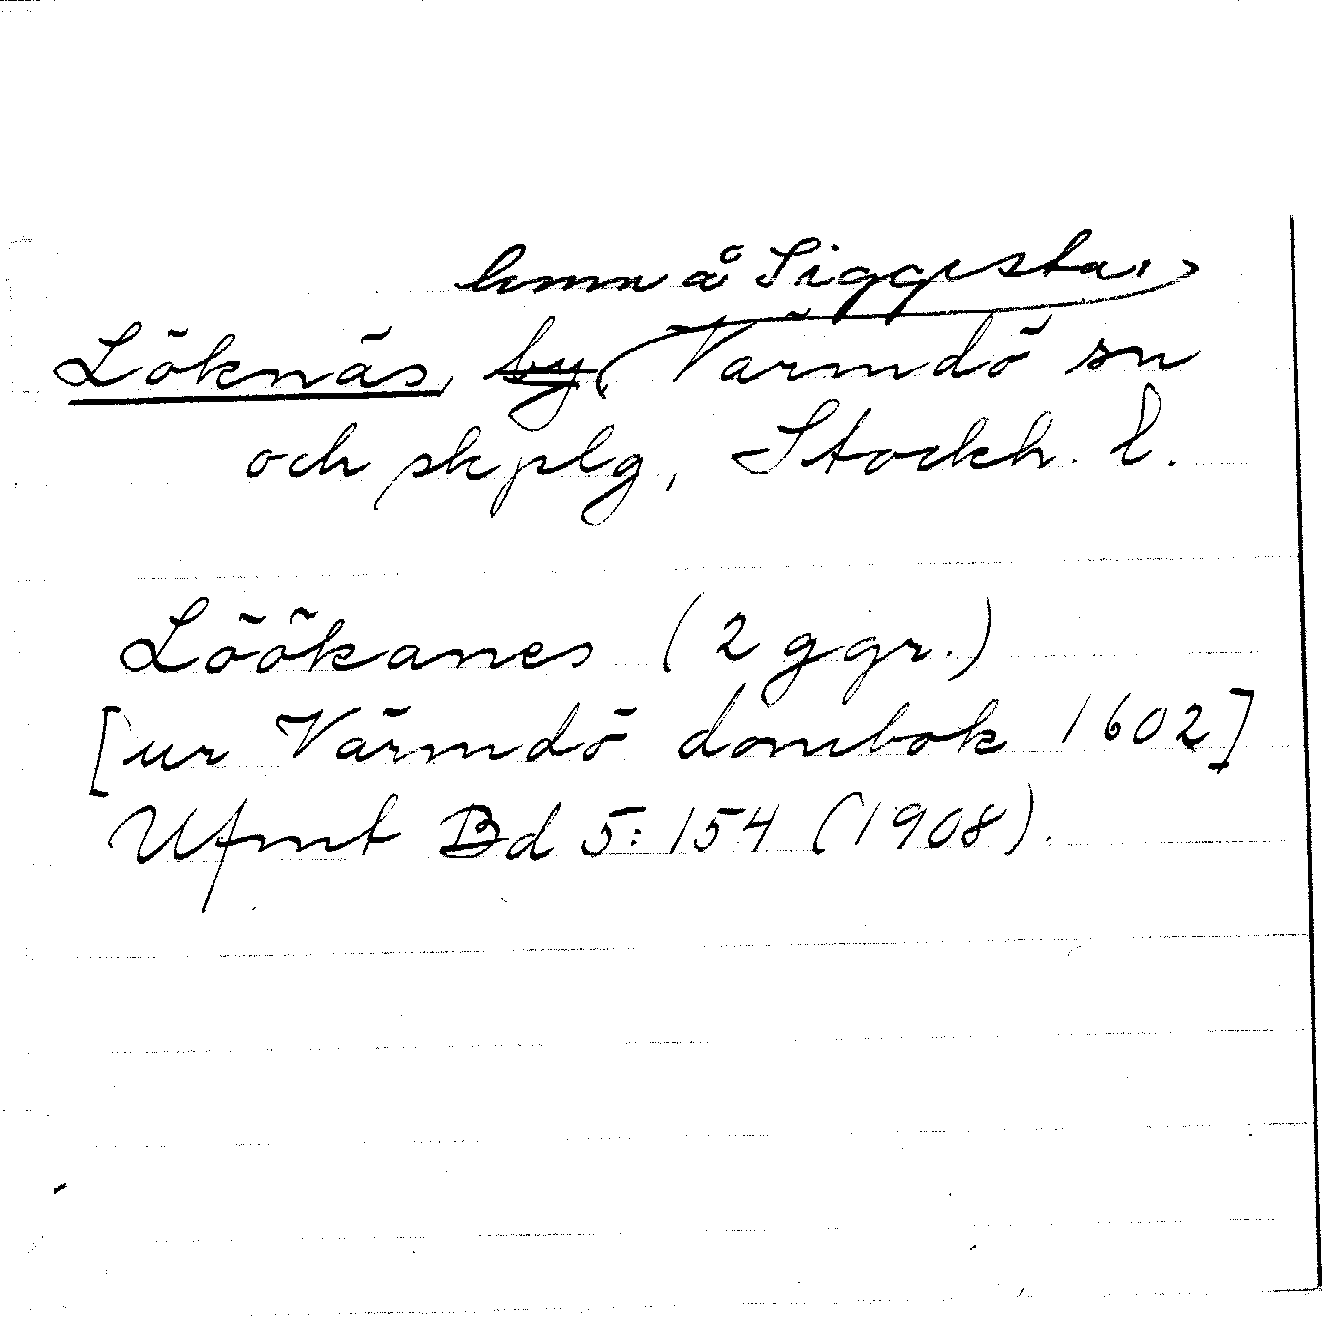 hmn å Siggesta,
Löknäs, by, Värmdö sn
och skplg, Stockh. l.
Löökanes (2 ggr.)
[ur Värmdö dombok 1602]
Ufmt Bd 5:154 (1908).